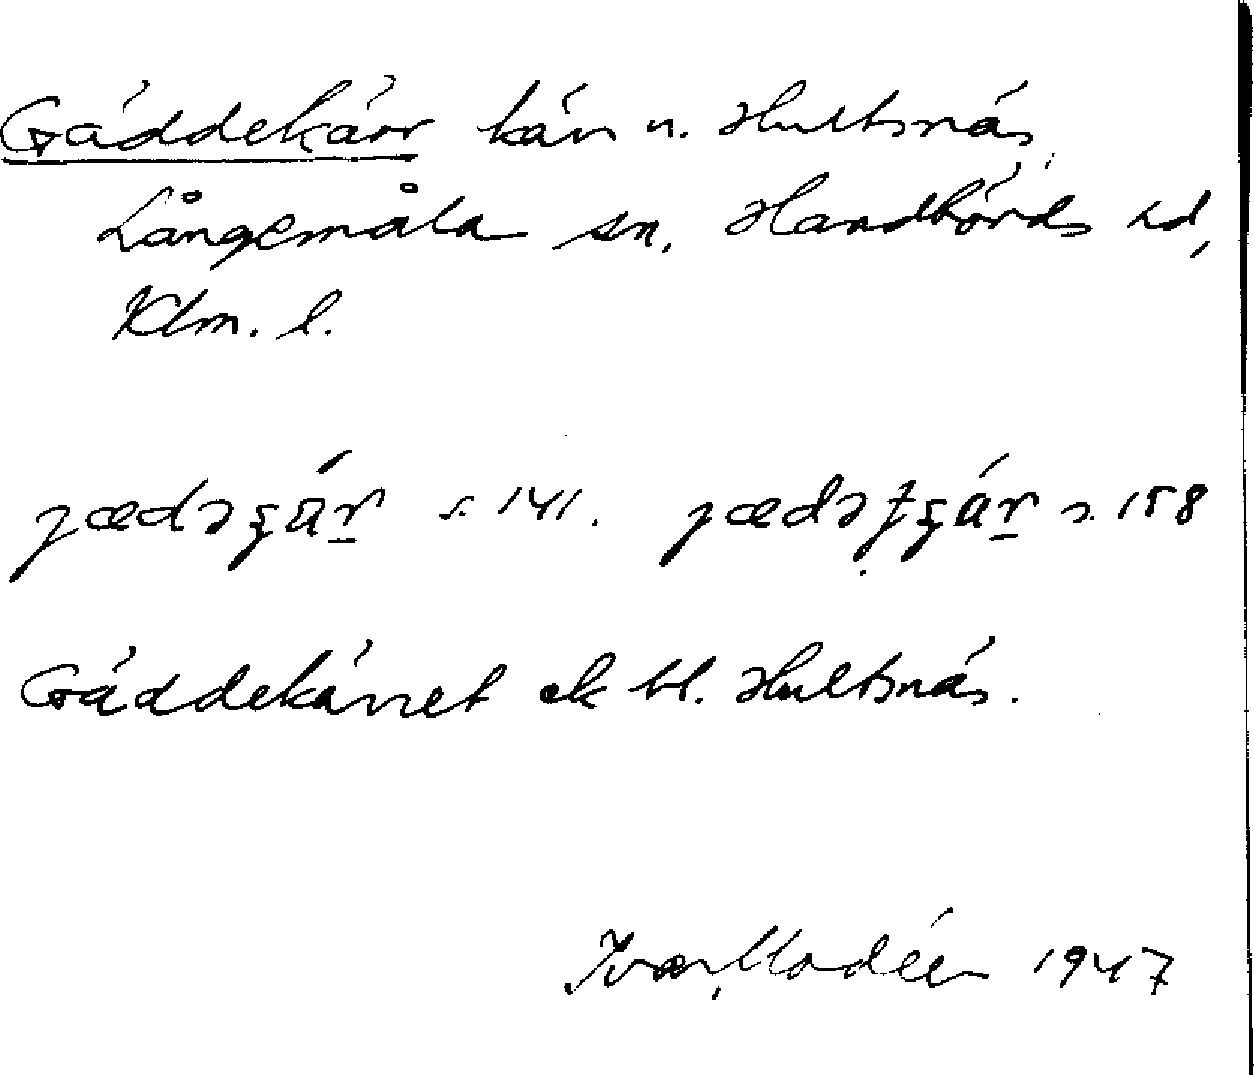 Gäddekärr kärr n. Hultsnäs,
Långemåla sn, Handbörds hd,
Klm. l.
s. 141. s. 158
Gäddekärret ek bl. Hultsnäs.
Ivar Modéer 1947